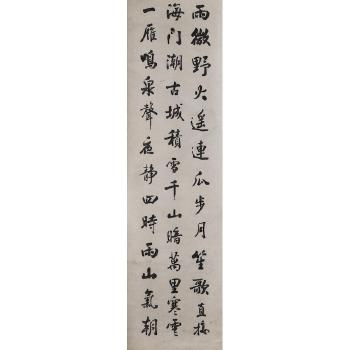 雨微野火遥連瓜步月笙歌直接
海门潮古城積雪千山暗萬里寒雲
一雁鳴泉聲夜静四時雨山氣朝